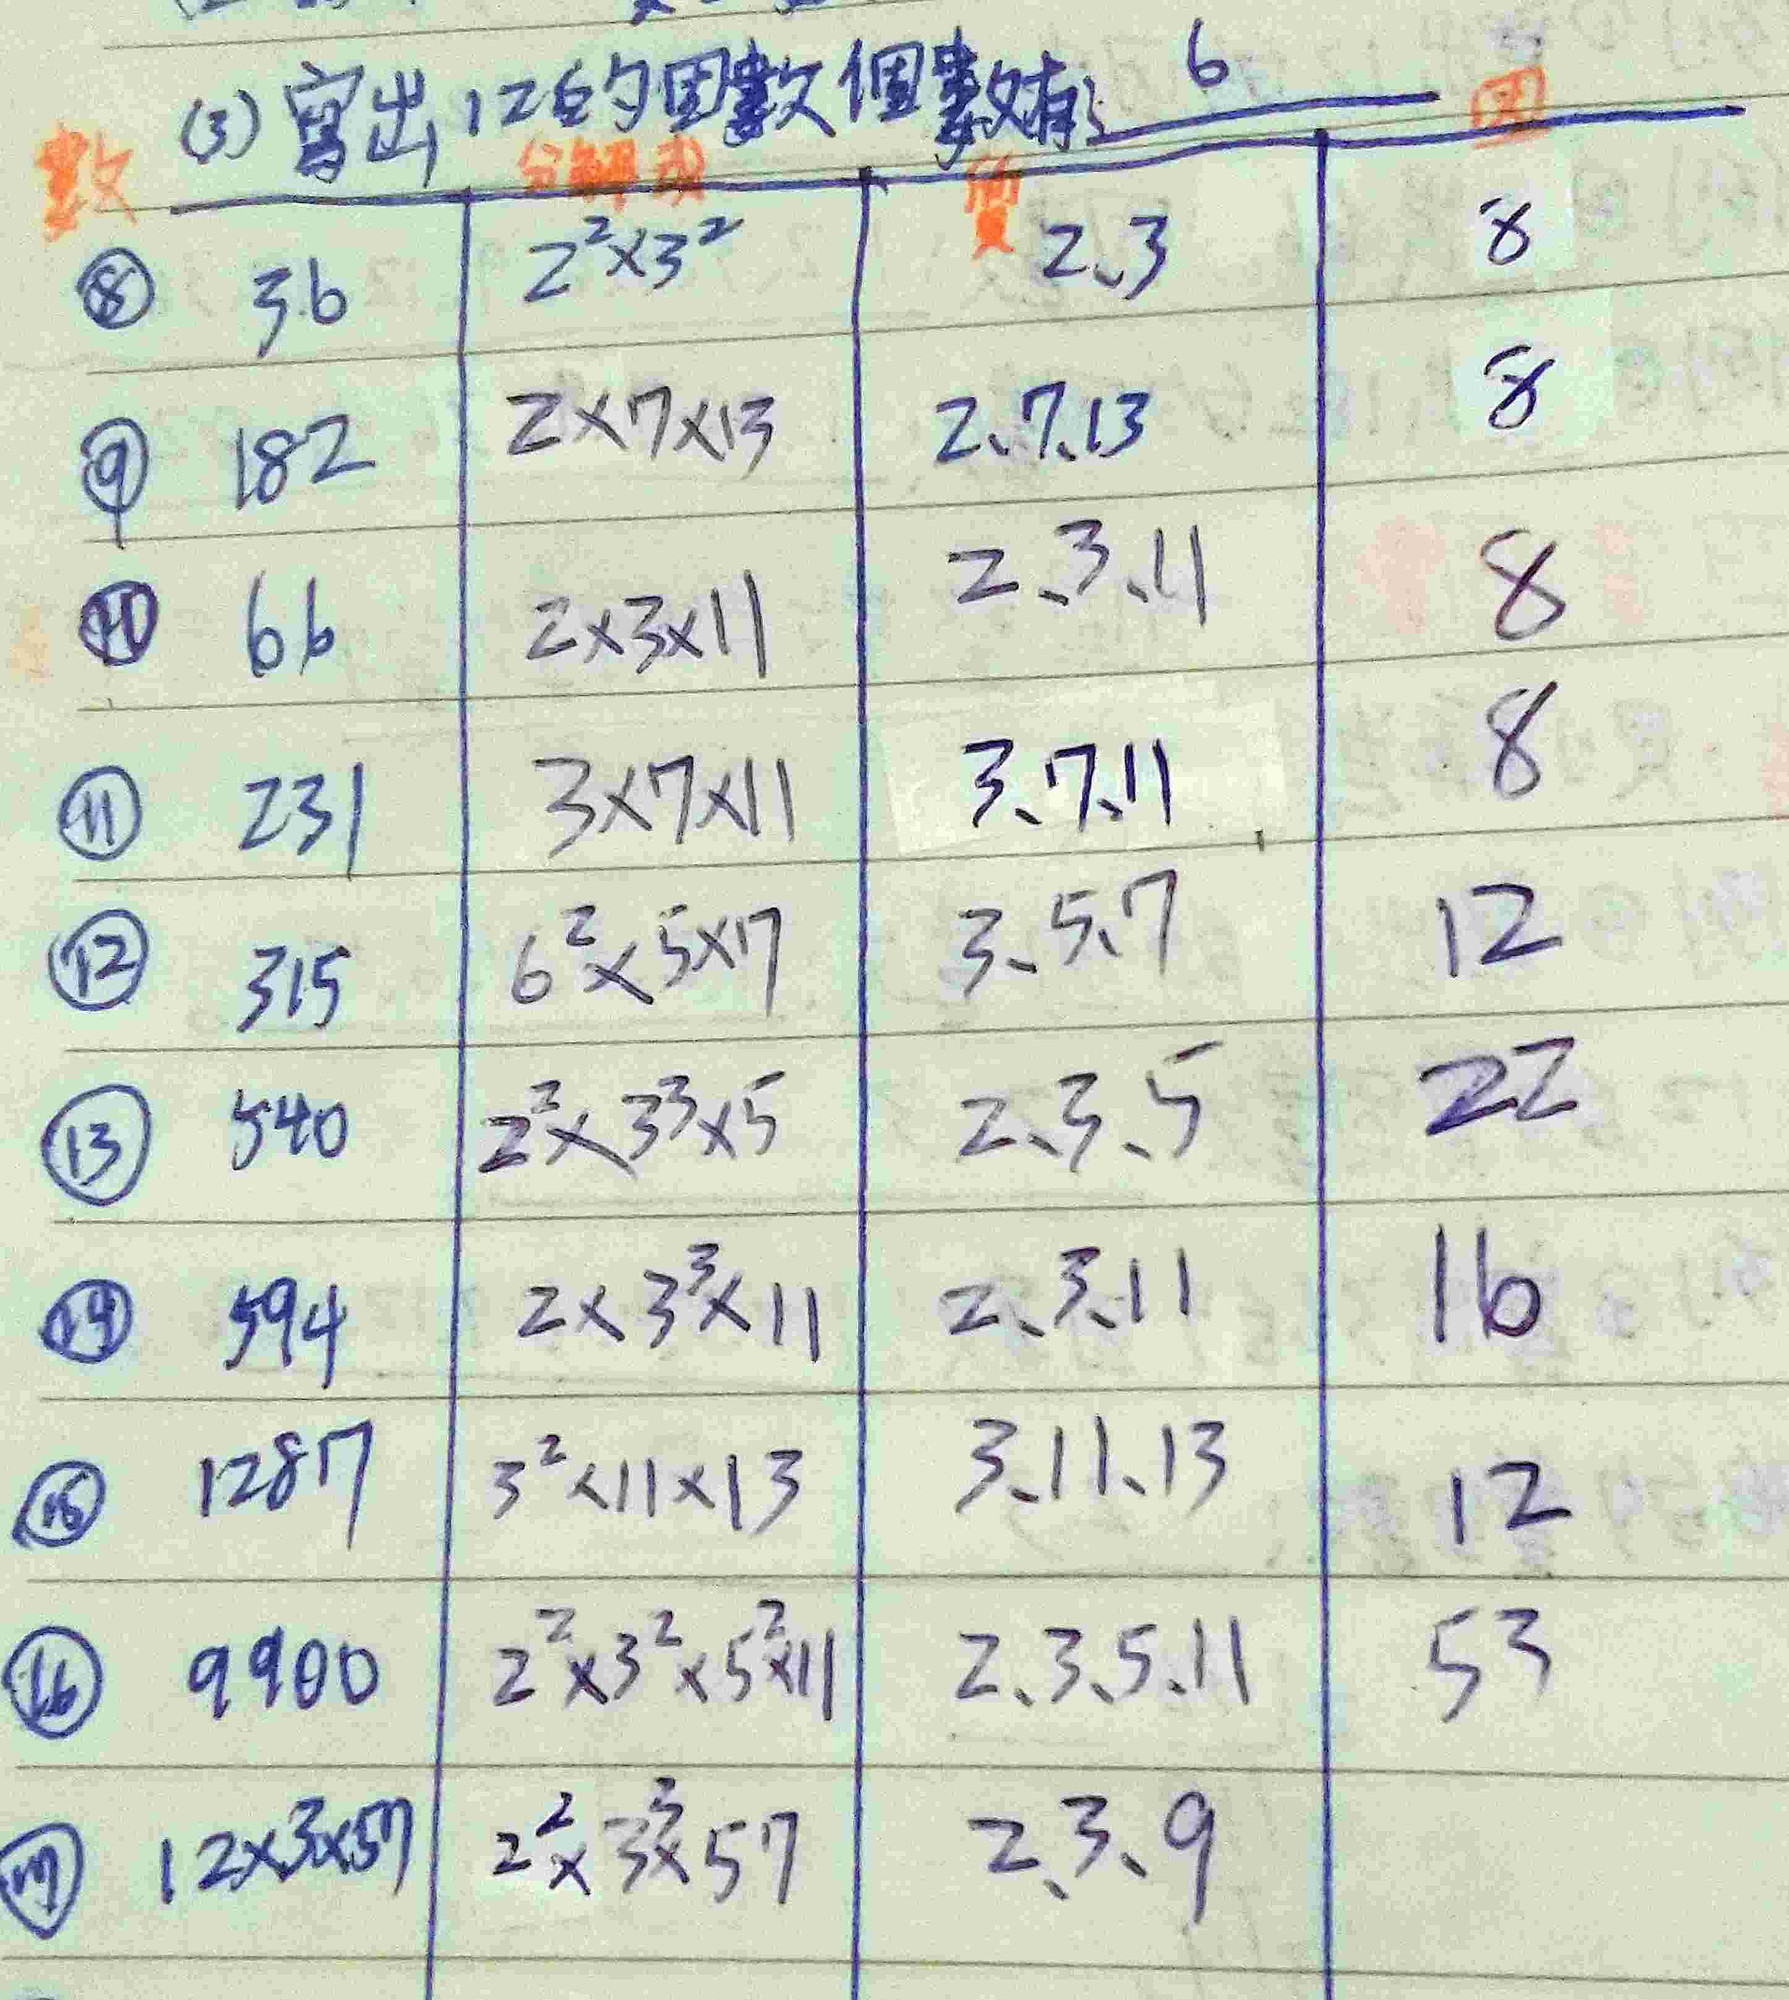 (3) 寫出12的因數個數有: 6
數 分解成 質 因
⑧ 36 2²×3² 2、3 8
⑨ 182 2×7×13 2、7、13 8
⑩ 66 2×3×11 2、3、11 8
⑪ 231 3×7×11 3、7、11 8
⑫ 315 6²×5×7 3、5、7 12
⑬ 540 2²×3³×5 2、3、5 22
⑭ 594 2×3³×11 2、3、11 16
⑮ 1287 3²×11×13 3、11、13 12
⑯ 9900 2²×3²×5²×11 2、3、5、11 53
⑰ 12×3×57 2²×3²×57 2、3、9